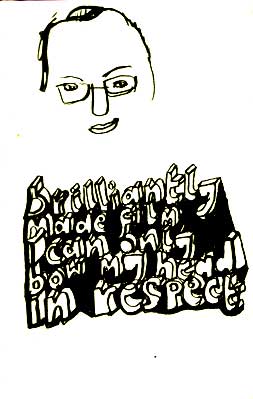 Brilliantly
made film
I can only
bow my head
in respect.